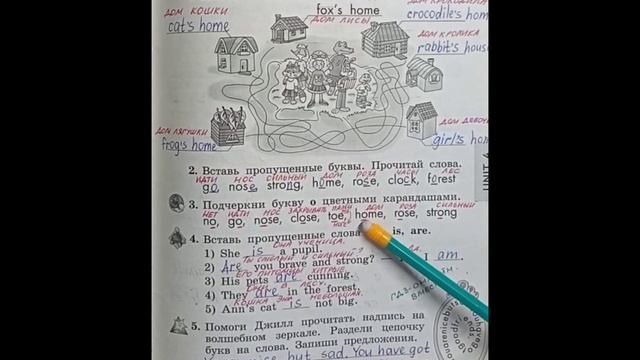 ДОМ КОШКИ
cat's home
fox's home
ДОМ ЛИСЫ
crocodile's hom
ДОМ КРОЛИКА
rabbit's house
ДОМ ЛЯГУШКИ
frog's home
girl's home
2. Вставь пропущенные буквы. Прочитай слова.
ИДТИ НОС СИЛЬНЫЙ ДОМ РОЗА ЧАСЫ ЛЕС
go, nose, strong, home, rose, clock, forest
3. Подчеркни букву о цветными карандашами.
НЕТ ИДТИ НОС ЗАКРЫВАТЬ ДОМ РОЗА СИЛЬНЫЙ
no, go, nose, close, toe, home, rose, strong
4. Вставь пропущенные слова is, are.
ОНА УЧЕНИЦА.
1) She is a pupil.
ТЫ СМЕЛЫЙ И СИЛЬНЫЙ? ДА.
2) Are you brave and strong? — I am.
ЕГО ПИТОМЦЫ ХИТРЫЕ.
3) His pets are cunning.
В ЛЕСУ.
4) They are in the forest.
КОШКА ЭНН НЕБОЛЬШАЯ.
5) Ann's cat is not big.
5. Помоги Джилл прочитать надпись на
волшебном зеркале. Раздели цепочку
букв на слова. Запиши предложения.
but sad. You have got